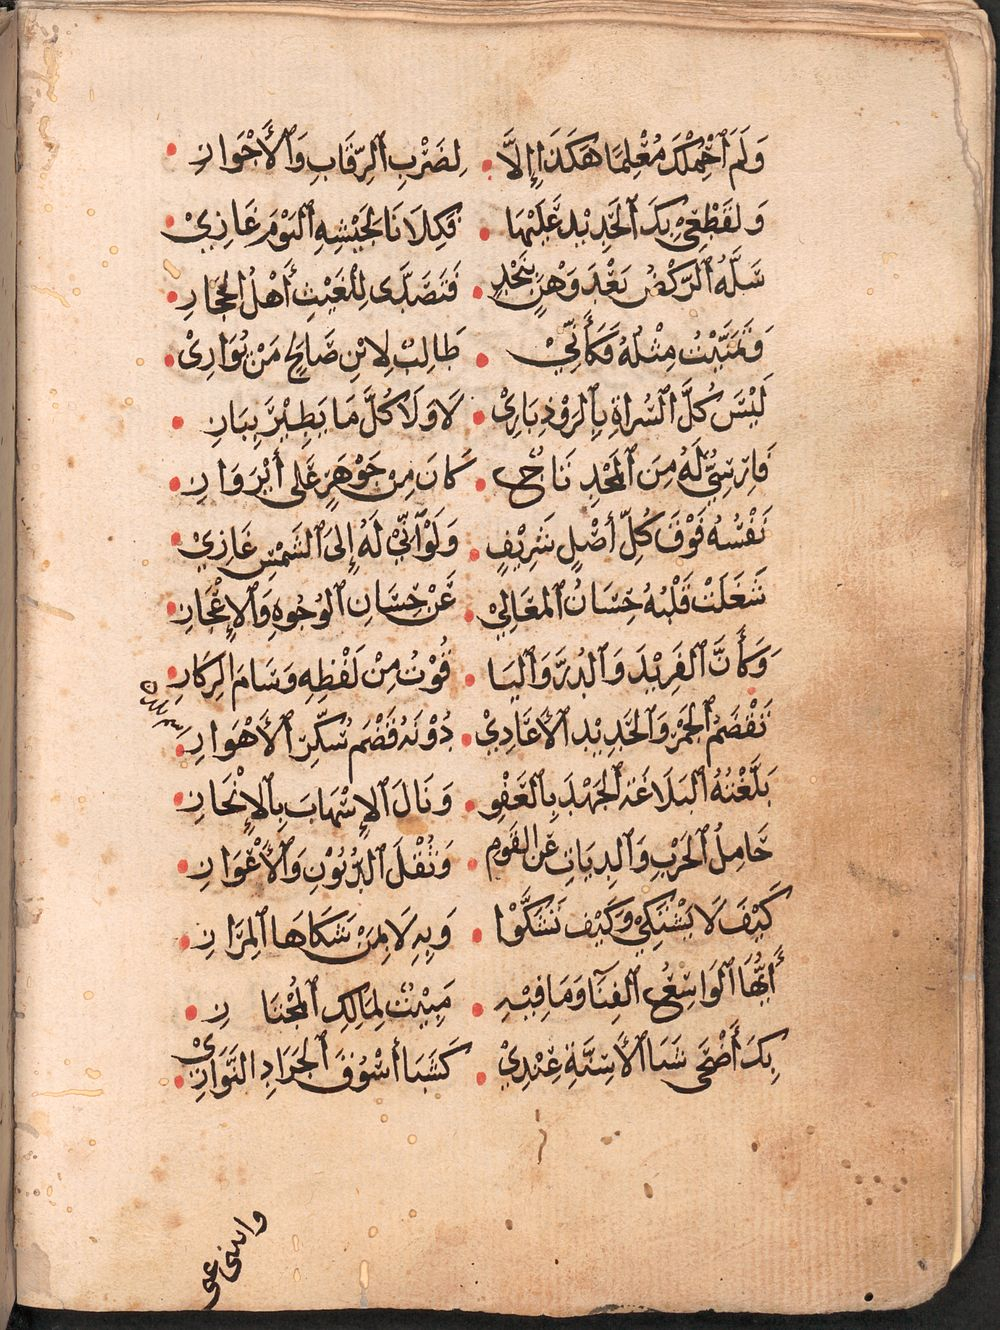 وَلَمْ اَحْمِلْكَ مُعْلِمًا هٰكَذَا إِلَّا لِضَرْبِ الرِّقَابِ وَالْأَجْوَازِ
وَلِقَطْعِيْ بِكَ الْحَدِيْدَ عَلَيْهَا فَكِلَانَا لِجِنْسِهِ الْيَوْمَ غَازِيْ
سَلَّهُ الرَّكْضُ بَعْدَ وَهْنٍ بِنَجْدٍ فَتَصَدَّى لِلْغَيْثِ أَهْلُ الْحِجَازِ
وَتَمَنَّيْتُ مِثْلَهُ فَكَأَنِّيْ طَالِبٌ لِابْنِ صَالِحٍ مَنْ يُوَازِيْ
لَيْسَ كُلَّ السُّرَاةِ بِالرَّوْذَبَارِيْ لَا وَلَا كُلَّ مَا يَطِيْرُ بِبَازِ
فَارِسِيٌّ لَهُ مِنَ الْمَجْدِ تَاجٌ كَانَ مِنْ جَوْهَرٍ عَلَى أَبْرَوَازِ
نَفْسُهُ فَوْقَ كُلِّ أَصْلٍ شَرِيْفٍ وَلَوْ اَنِّيْ لَهُ إِلَى الشَّمْسِ عَازِيْ
شَغَلَتْ قَلْبَهُ حِسَانُ الْمَعَالِيْ عَنْ حِسَانِ الْوُجُوهِ وَالْإِعْجَازِ
وَكَأَنَّ الْفَرِيْدَ وَالدُّرَّ وَالْيَا قُوْتَ مِنْ لَفْظِهِ وَسَامَ الرِّكَازِ
تَقْضَمُ الْجَمْرَ وَالْحَدِيْدَ الْأَعَادِيْ دُوْنَهُ قَضْمَ سُكَّرِ الْأَهْوَازِ
بَلَّغَتْهُ الْبَلَاغَةُ الْجَهْدَ بِالْعَفْوِ وَنَالَ الْإِسْهَابَ بِالْإِيْجَازِ
حَامِلُ الْحَرْبِ وَالدِّيَاتِ عَنِ الْقَوْمِ وَثِقْلَ الدُّيُوْنِ وَالْأَعْوَازِ
كَيْفَ لَا يَشْتَكِيْ وَكَيْفَ تَشَكَّوْا وَبِهِ لَا بِمَنْ شَكَاهَا الْمَرَازِ
أَيُّهَا الْوَاسِعُ الْفِنَآ وَمَا فِيْهِ مَبِيْتٌ لِمَالِكَ الْمُجْتَازِ
بِكَ أَضْحَى شَبَا الْأَسِنَّةِ عِنْدِيْ كَشَبَا أَسْوُقِ الْجَرَادِ النَّوَازِيْ
وانثنى عني